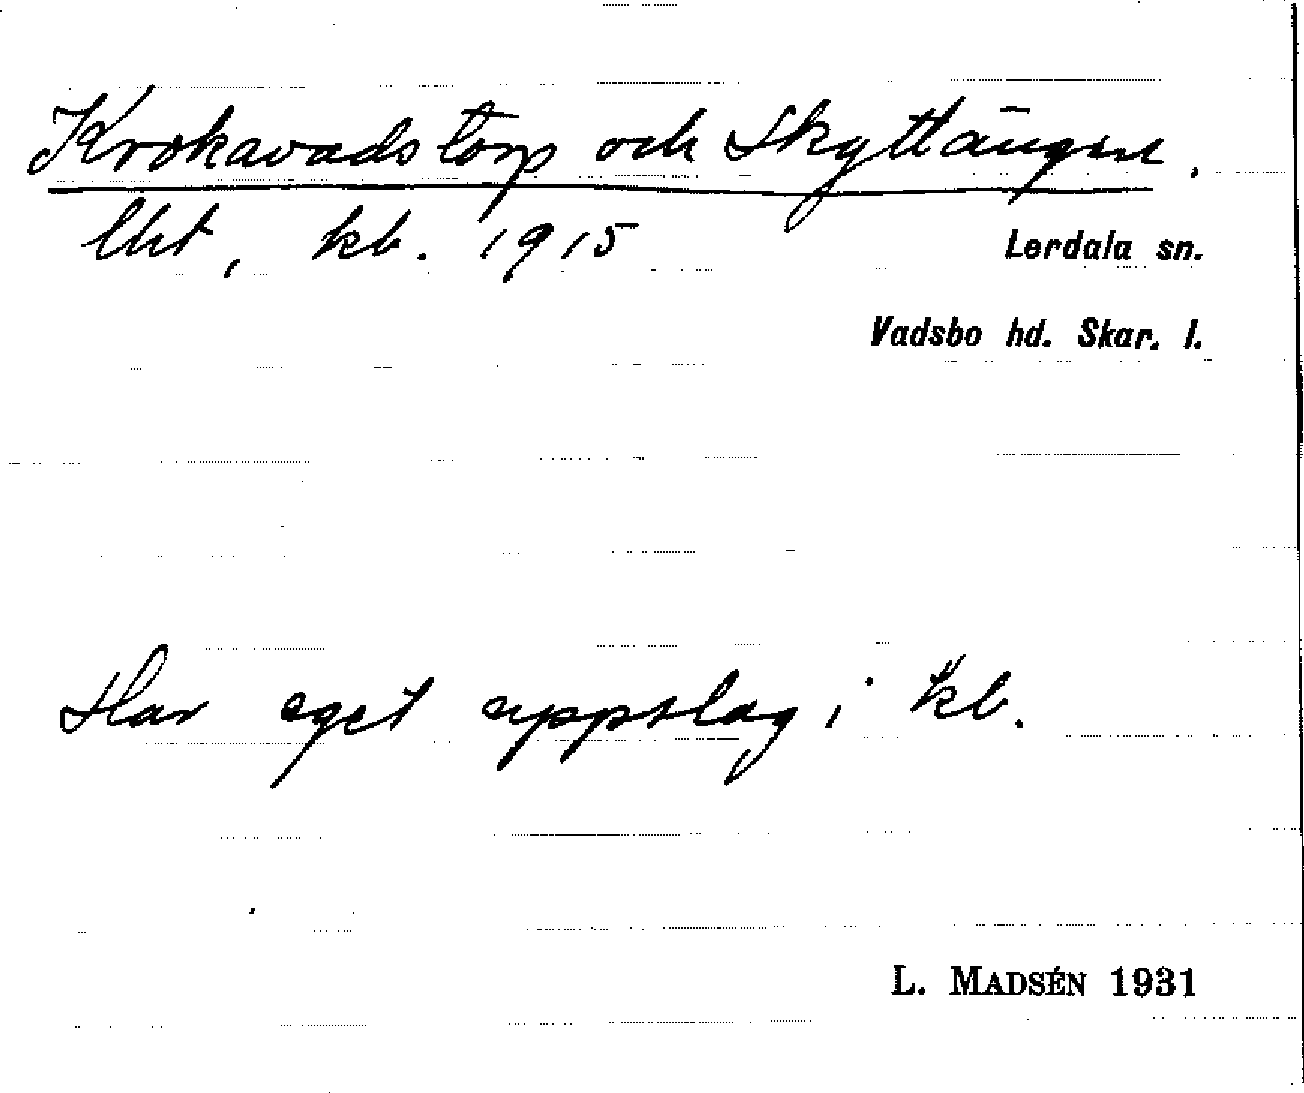 Krokavadstorp och Skyttängen.
lht, kb. 1915
Lerdala sn.
Vadsbo hd. Skar. l.
Har eget uppslag i kb.
L. MADSÉN 1931